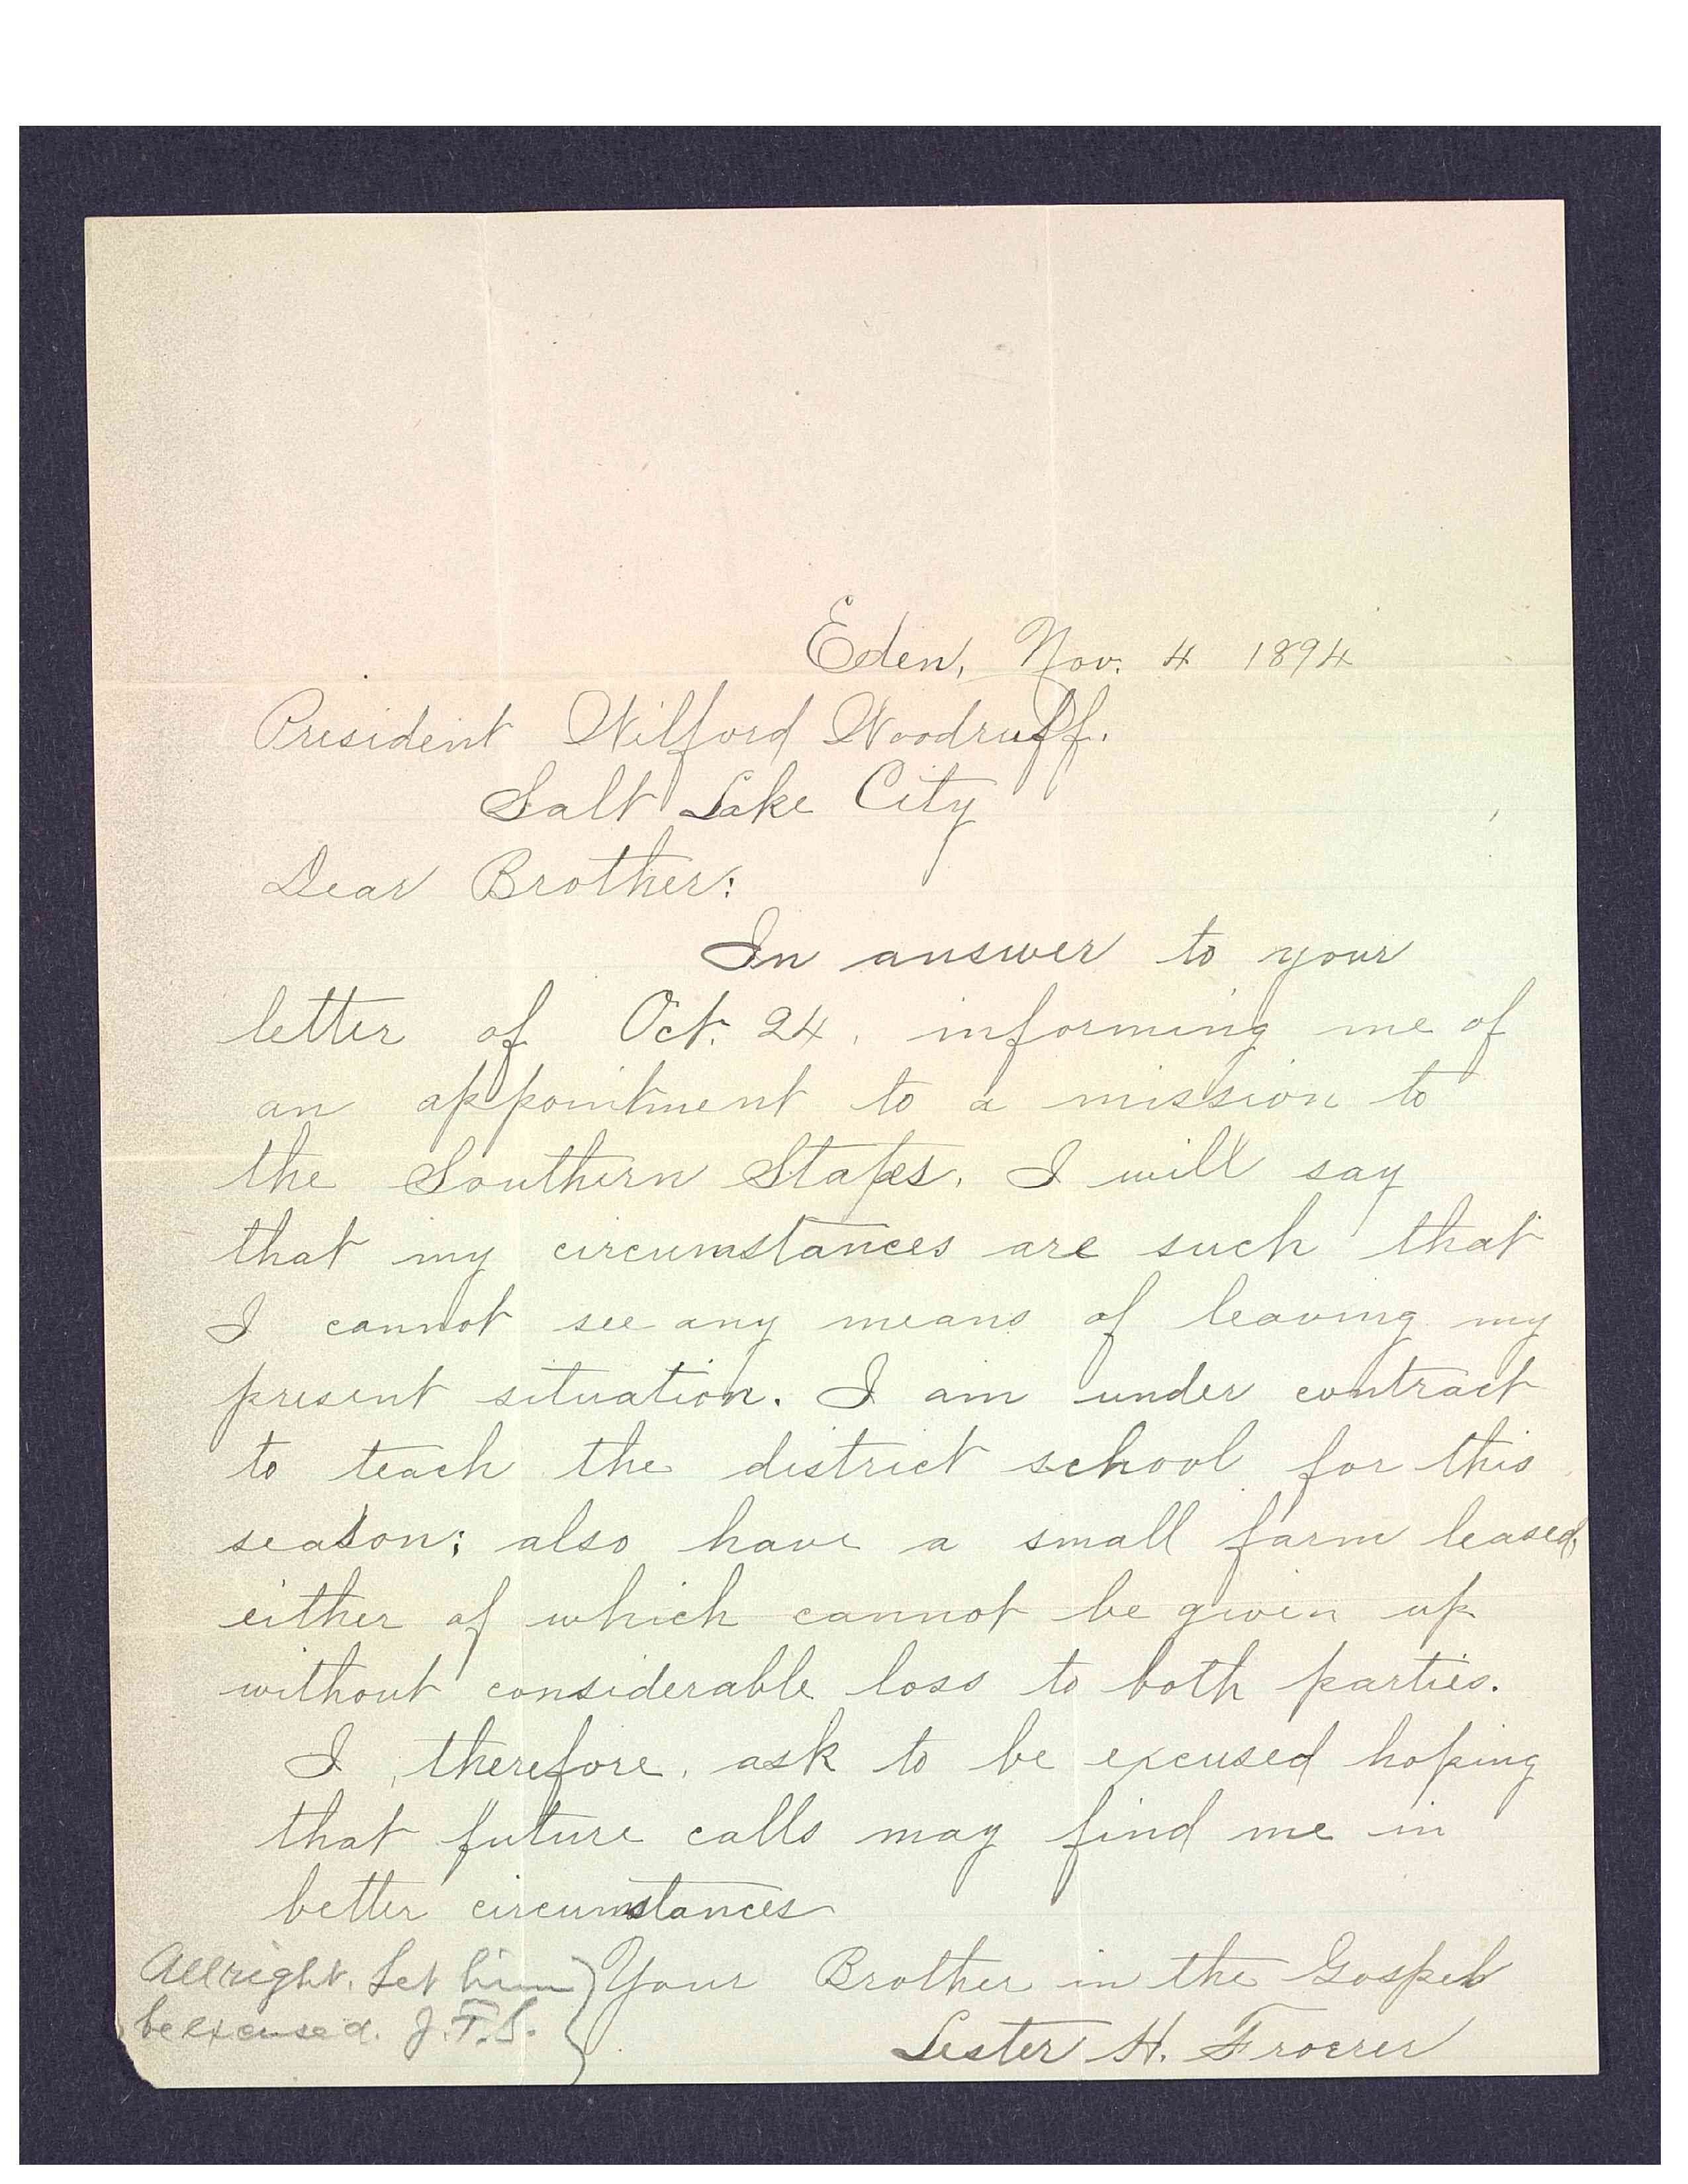 Eden, Nov. 4 1894
President Wilford Woodruff.
Salt Lake City
Dear Brother:
In answer to your
letter of Oct. 24, informing me of
an appointment to a mission to
the Southern States, I will say
that my circumstances are such that
I cannot see any means of leaving my
present situation. I am under contract
to teach the district school for this
season; also have a small farm leased,
either of which cannot be given up
without considerable loss to both parties.
I, therefore, ask to be excused hoping
that future calls may find me in
better circumstances
Your Brother in the Gospel
Lester H. Froerer
All right. Let him
be excused. J.F.S.